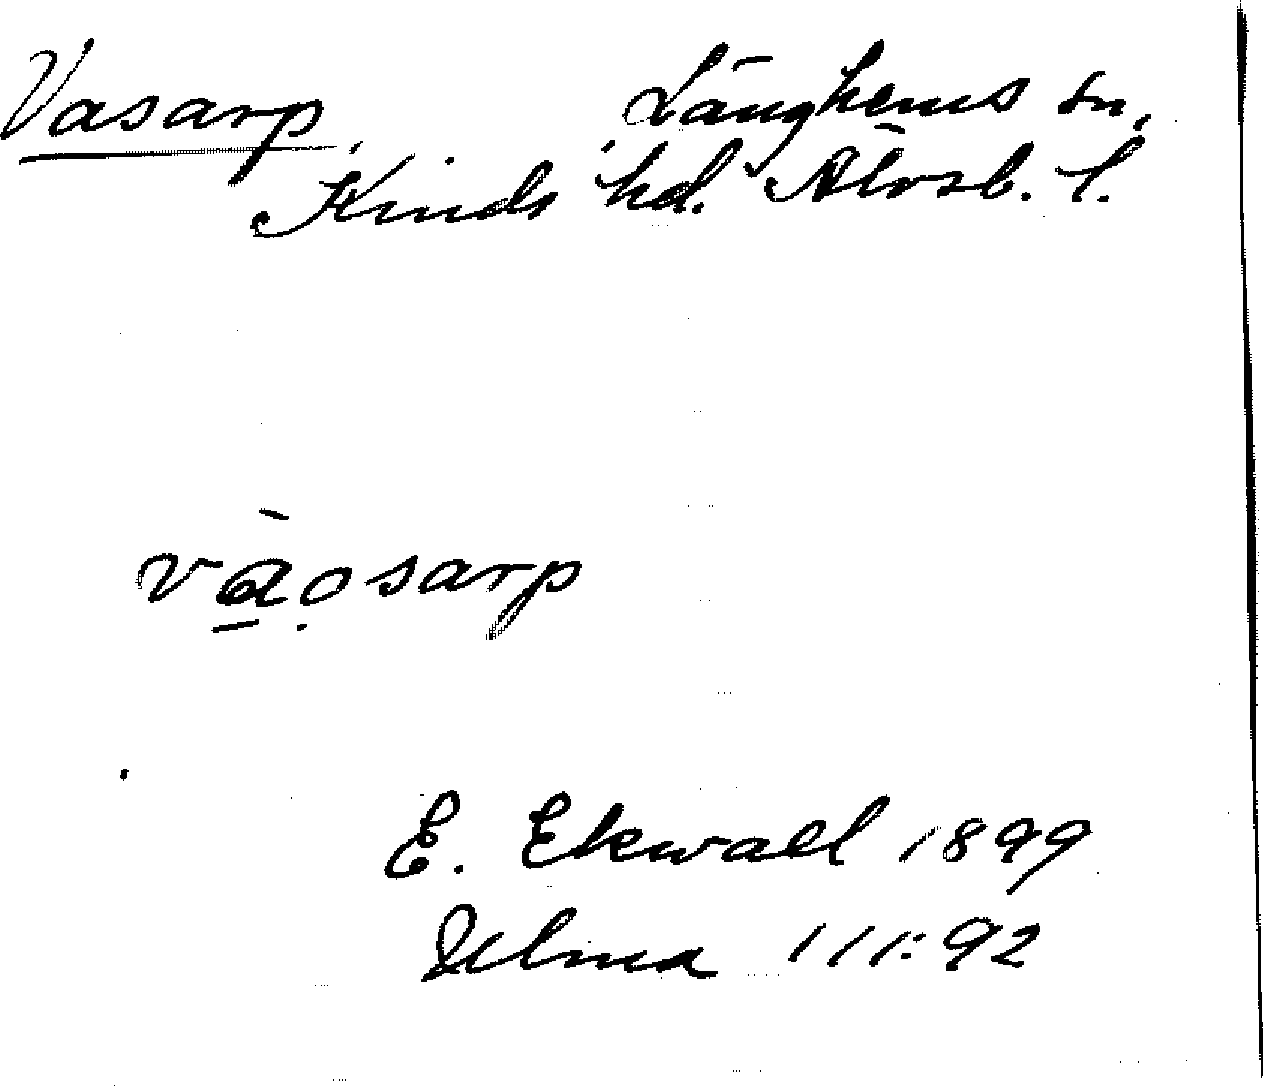 Vasarp. Länghems sn,
Kinds hd. Älvsb. l.
vào̤sarp
E. Ekwall 1899
Ulma 111:92